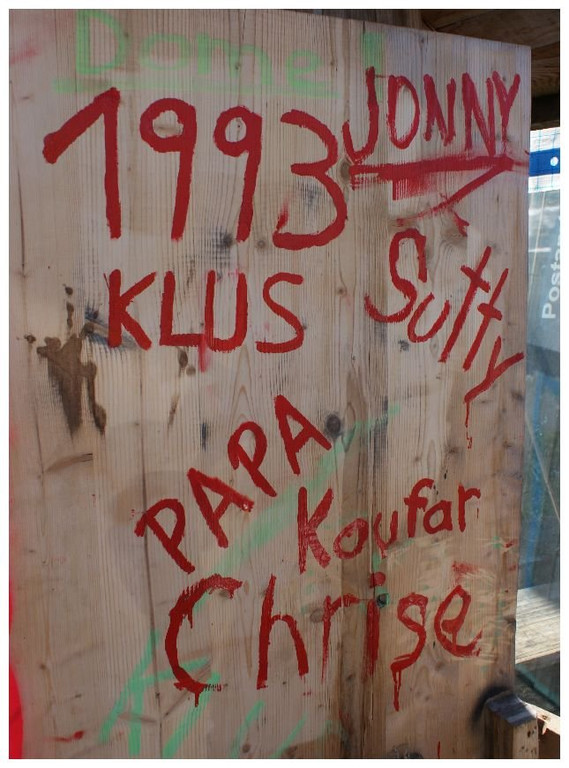 Dome!
1993
JONNY
KLUS
Sutty
PAPA
Koufar
Chrise
Posta